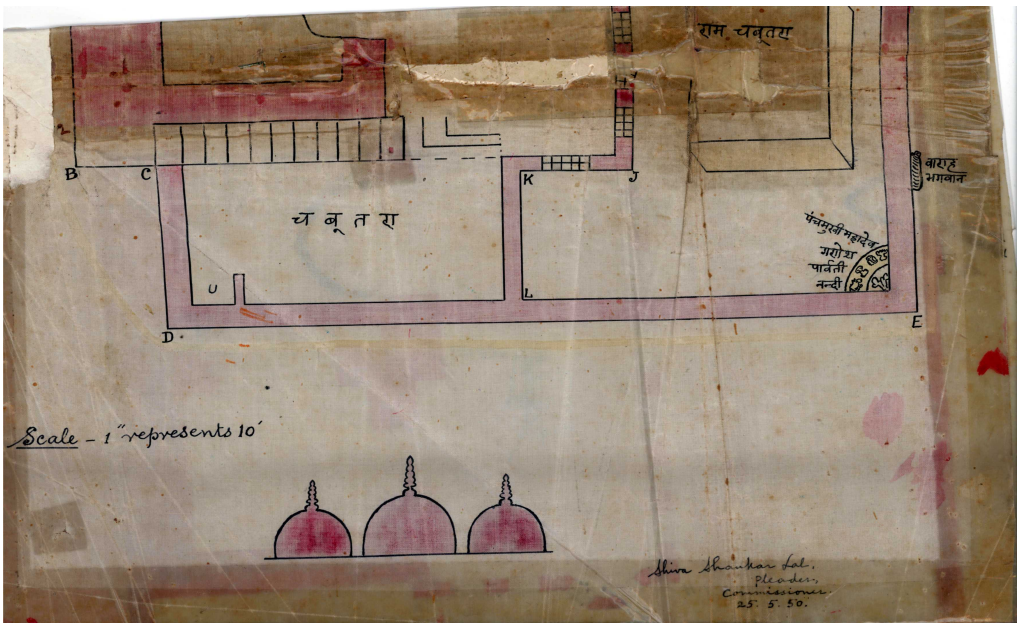 राम चबूतरा
2
B
C
K
J
वाराह
भगवान
चबूतरा
पंचमुखी महादेव
गणेश
पार्वती
नन्दी
U
L
D
E
Scale - 1" represents 10'
Shiva Shankar Lal,
Pleader,
Commissioner.
25. 5. 50.